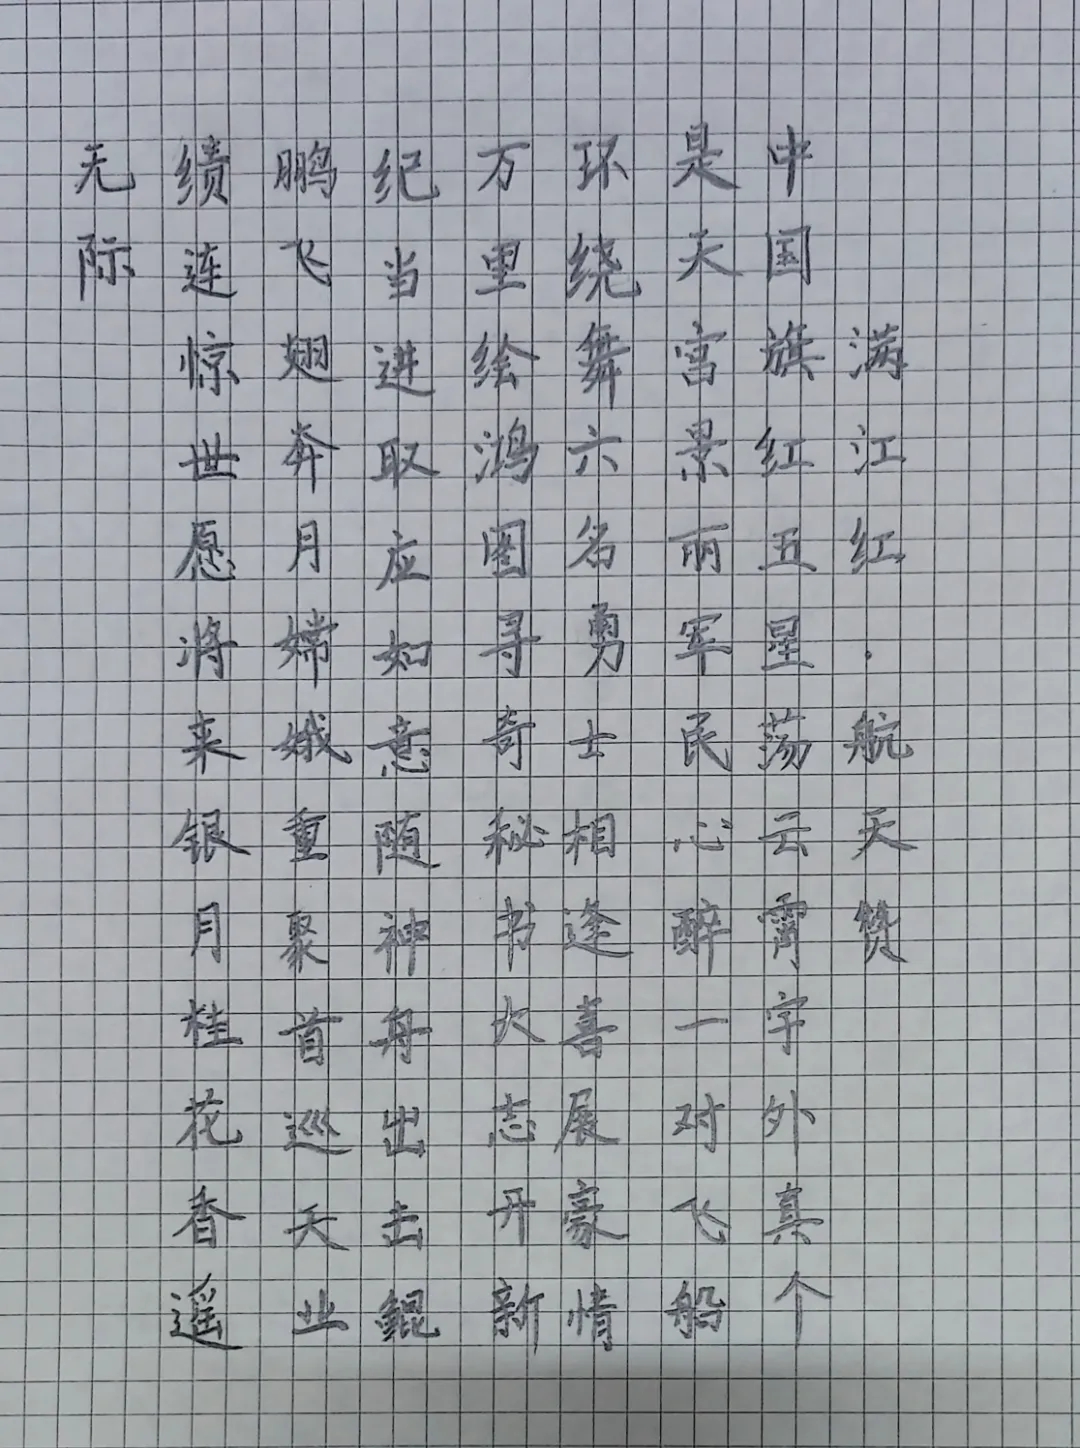 满江红·航天赞
中国旗红五星荡云霄宇外真个
是天宫景丽军民心醉一对飞船
环绕舞六名勇士相逢喜展豪情
万里绘鸿图寻奇秘书大志开新
纪当进取应如意随神舟出击鲲
鹏飞翅奔月嫦娥重聚首巡天业
绩连惊世愿将来银月桂花香遥
无际